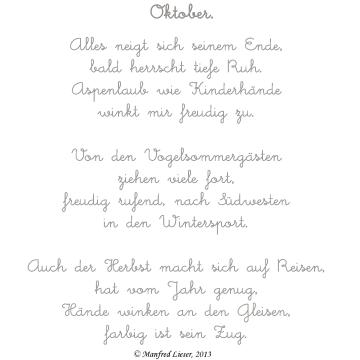 Oktober.
Alles neigt sich seinem Ende,
bald herrscht tiefe Ruh.
Aspenlaub wie Kinderhände
winkt mir freudig zu.
Von den Vogelsommergästen
ziehen viele fort,
freudig rufend, nach Südwesten
in den Wintersport.
Auch der Herbst macht sich auf Reisen,
hat vom Jahr genug,
Hände winken an den Gleisen,
farbig ist sein Zug.
© Manfred Lieser, 2013